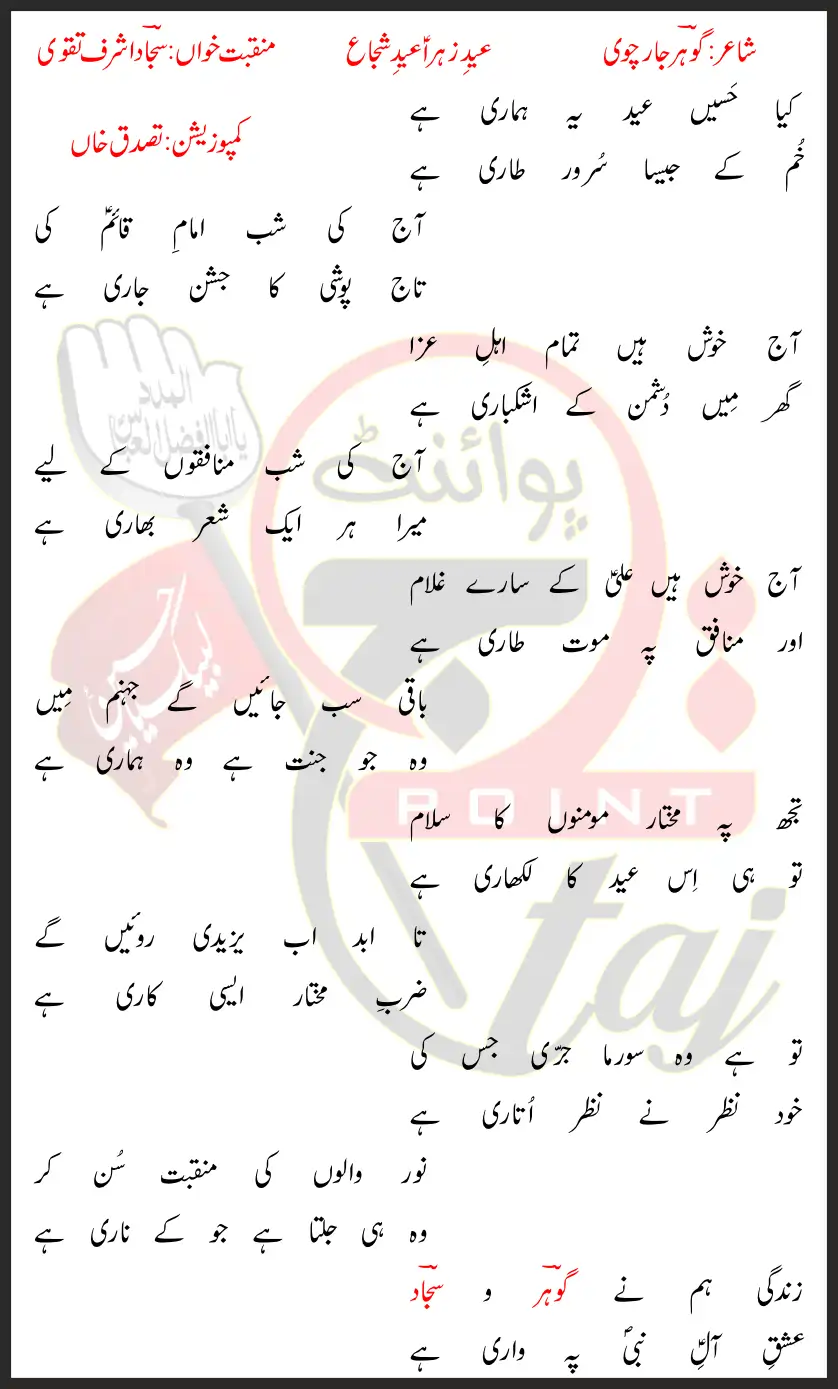 شاعر: گوہر جارچوی عیدِ زہراؑ عیدِ شجاع منقبت خواں: سجاد اشرف تقوی
کیا حَسیں عید یہ ہماری ہے
کمپوزیشن: تصدق خاں
خُم کے جیسا سُرور طاری ہے
آج کی شب امامِ قائمؑ کی
تاج پوشی کا جشن جاری ہے
آج خوش ہیں تمام اہلِ عزا
گھر مِیں دُشمن کے اشکباری ہے
آج کی شب منافقوں کے لیے
میرا ہر ایک شعر بھاری ہے
آج خوش ہیں علیؑ کے سارے غلام
اور منافق پہ موت طاری ہے
باقی سب جائیں گے جہنم مِیں
وہ جو جنت ہے وہ ہماری ہے
تجھ پہ مختار مومنوں کا سلام
تو ہی اِس عید کا لکھاری ہے
تا ابد اب یزیدی روئیں گے
ضربِ مختار ایسی کاری ہے
تو ہے وہ سورما جرّی جس کی
خود نظر نے نظر اُتاری ہے
نور والوں کی منقبت سُن کر
وہ ہی جلتا ہے جو کے ناری ہے
زندگی ہم نے گوہر و سجاد
عشقِ آلِ نبیؐ پہ واری ہے
البلد
یا ابا الفضل العباس
لبیک یا حسین
پوائنٹ
تاج
POINT
taj